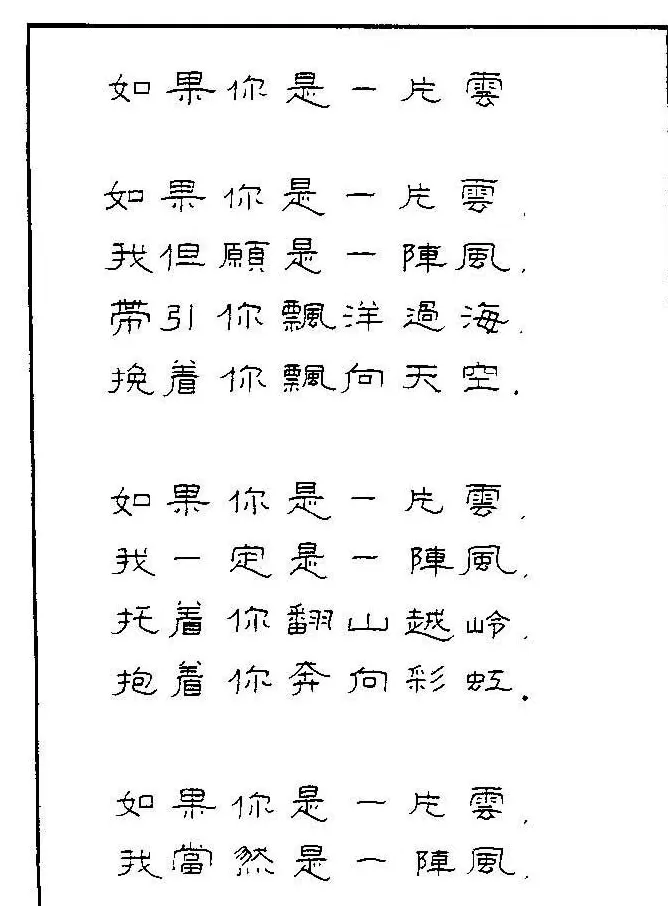 如果你是一片雲
如果你是一片雲,
我但願是一陣風,
帶引你飄洋過海,
挽着你飄向天空.
如果你是一片雲,
我一定是一陣風,
托着你翻山越岭,
抱着你奔向彩虹.
如果你是一片雲,
我當然是一陣風,